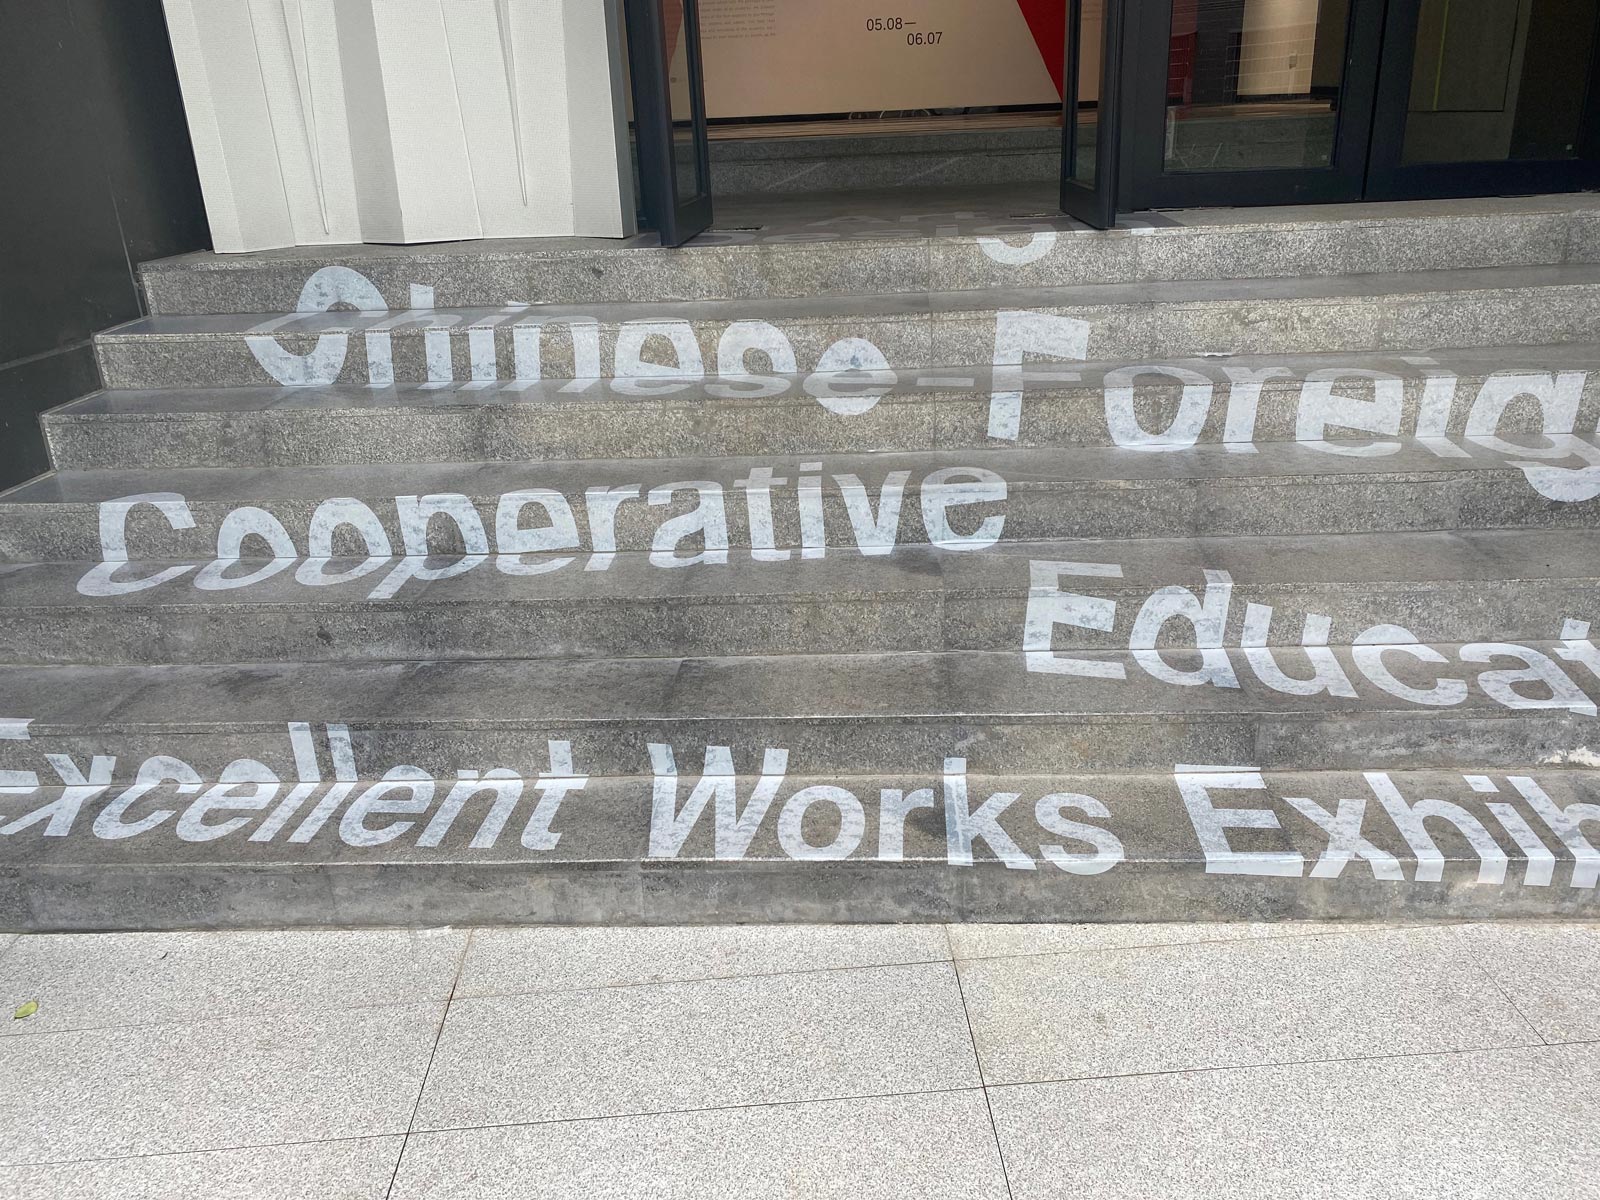 05.08—
06.07
Art
Design
Chinese-Foreig
Cooperative
Educat
Excellent Works Exhib